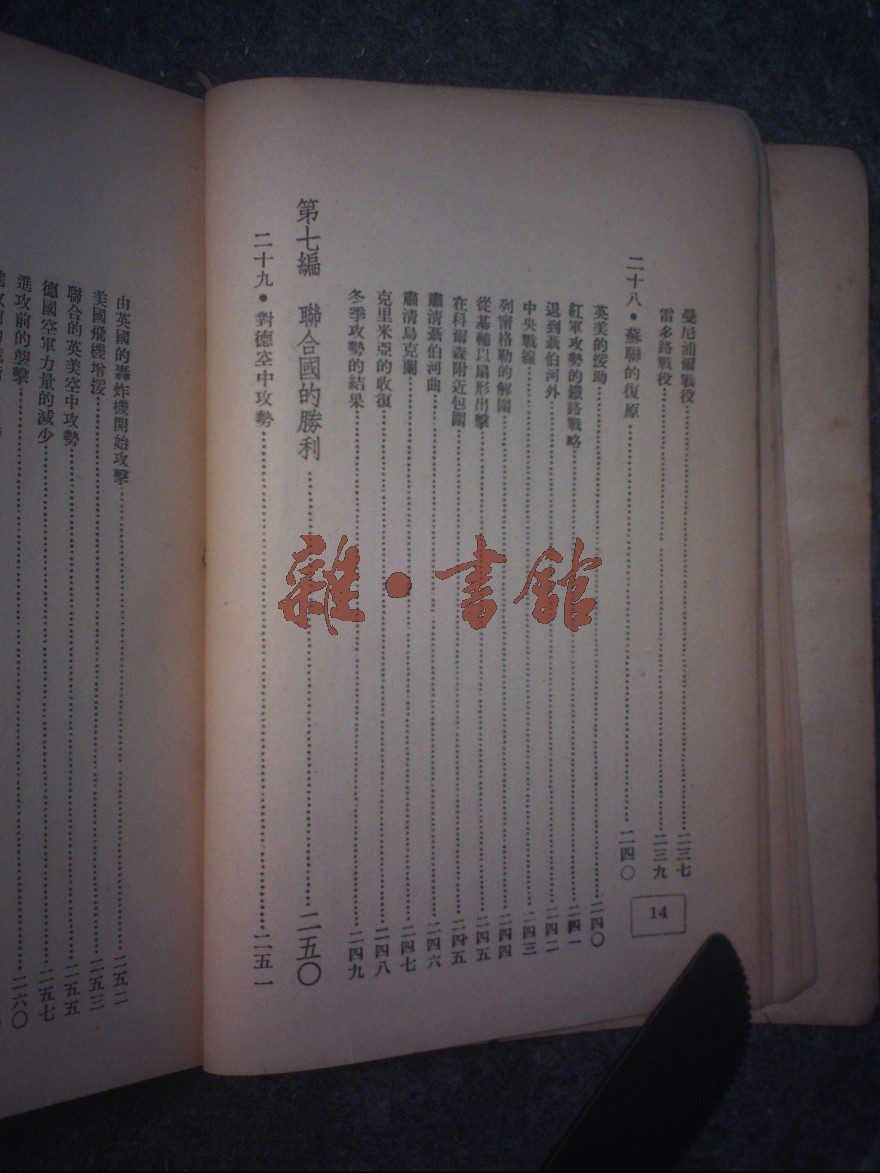 曼尼浦爾戰役……二三七
雷多路戰役……二三九
二十八・蘇聯的復原……二四〇
英美的援助……二四〇
紅軍攻勢的鐵路戰略……二四一
退到聶伯河外……二四二
中央戰線……二四三
列甯格勒的解圍……二四四
從基輔以扇形出擊……二四五
在科爾森附近包圍……二四五
肅清聶伯河曲……二四六
肅清烏克蘭……二四七
克里米亞的收復……二四八
冬季攻勢的結果……二四九
第七編 聯合國的勝利……二五〇
二十九・對德空中攻勢……二五一
14
由英國的轟炸機開始攻擊……二五二
美國飛機增援……二五三
聯合的英美空中攻勢……二五五
德國空軍力量的減少……二五七
進攻前的襲擊……二六〇
雜・書館